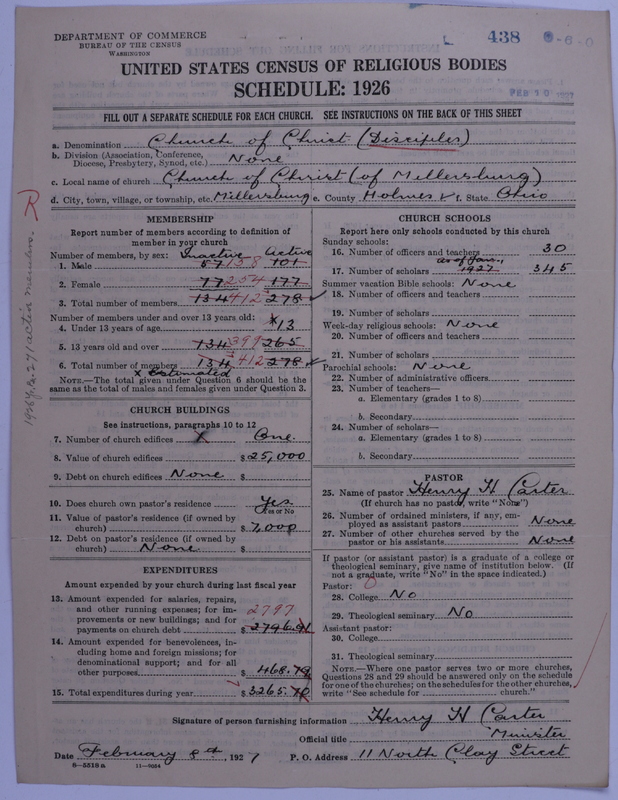 DEPARTMENT OF COMMERCE
BUREAU OF THE CENSUS
WASHINGTON
438
6-0
FEB 10 1927
UNITED STATES CENSUS OF RELIGIOUS BODIES
SCHEDULE: 1926
FILL OUT A SEPARATE SCHEDULE FOR EACH CHURCH. SEE INSTRUCTIONS ON THE BACK OF THIS SHEET
a. Denomination Church of Christ (Disciples)
b. Division (Association, Conference,
Diocese, Presbytery, Synod, etc.) None
c. Local name of church Church of Christ (of Millersburg)
d. City, town, village, or township, etc. Millersburg e. County Holmes f. State Ohio
R
1926 Yr. Bk. 279 active members.
MEMBERSHIP
Report number of members according to definition of
member in your church
Number of members, by sex: Inactive Active
1. Male 57 158 101
2. Female 77 254 177
3. Total number of members 134 412 278
Number of members under and over 13 years old:
4. Under 13 years of age x 13
5. 13 years old and over 134 399 265
6. Total number of members 134 412 278
x Estimated
NOTE.—The total given under Question 6 should be the
same as the total of males and females given under Question 3.
CHURCH BUILDINGS
See instructions, paragraphs 10 to 12
7. Number of church edifices X One
8. Value of church edifices $25,000
9. Debt on church edifices None $
10. Does church own pastor's residence Yes
Yes or No
11. Value of pastor's residence (if owned by
church) $7,000
12. Debt on pastor's residence (if owned by
church) None $
EXPENDITURES
Amount expended by your church during last fiscal year
13. Amount expended for salaries, repairs,
and other running expenses; for im-
provements or new buildings; and for
payments on church debt 2797 $2796.91
14. Amount expended for benevolences, in-
cluding home and foreign missions; for
denominational support; and for all
other purposes $468.79
15. Total expenditures during year $3265.70
CHURCH SCHOOLS
Report here only schools conducted by this church
Sunday schools:
16. Number of officers and teachers 30
as of Jan.,
17. Number of scholars 1927 345
Summer vacation Bible schools: None
18. Number of officers and teachers
19. Number of scholars
Week-day religious schools: None
20. Number of officers and teachers
21. Number of scholars
Parochial schools: None
22. Number of administrative officers
23. Number of teachers—
a. Elementary (grades 1 to 8)
b. Secondary
24. Number of scholars—
a. Elementary (grades 1 to 8)
b. Secondary
PASTOR
25. Name of pastor Henry H Carter
(If church has no pastor, write "None")
26. Number of ordained ministers, if any, em-
ployed as assistant pastors None
27. Number of other churches served by the
pastor or his assistants None
If pastor (or assistant pastor) is a graduate of a college or
theological seminary, give name of institution below. (If
not a graduate, write "No" in the space indicated.)
Pastor:
28. College No
29. Theological seminary No
Assistant pastor:
30. College
31. Theological seminary
NOTE.—Where one pastor serves two or more churches,
Questions 28 and 29 should be answered only on the schedule
for one of the churches; on the schedules for the other churches,
write "See schedule for church."
Signature of person furnishing information Henry H Carter
Official title Minister
Date February 8th, 1927 P. O. Address 11 North Clay Street
8—5518a 11—9024